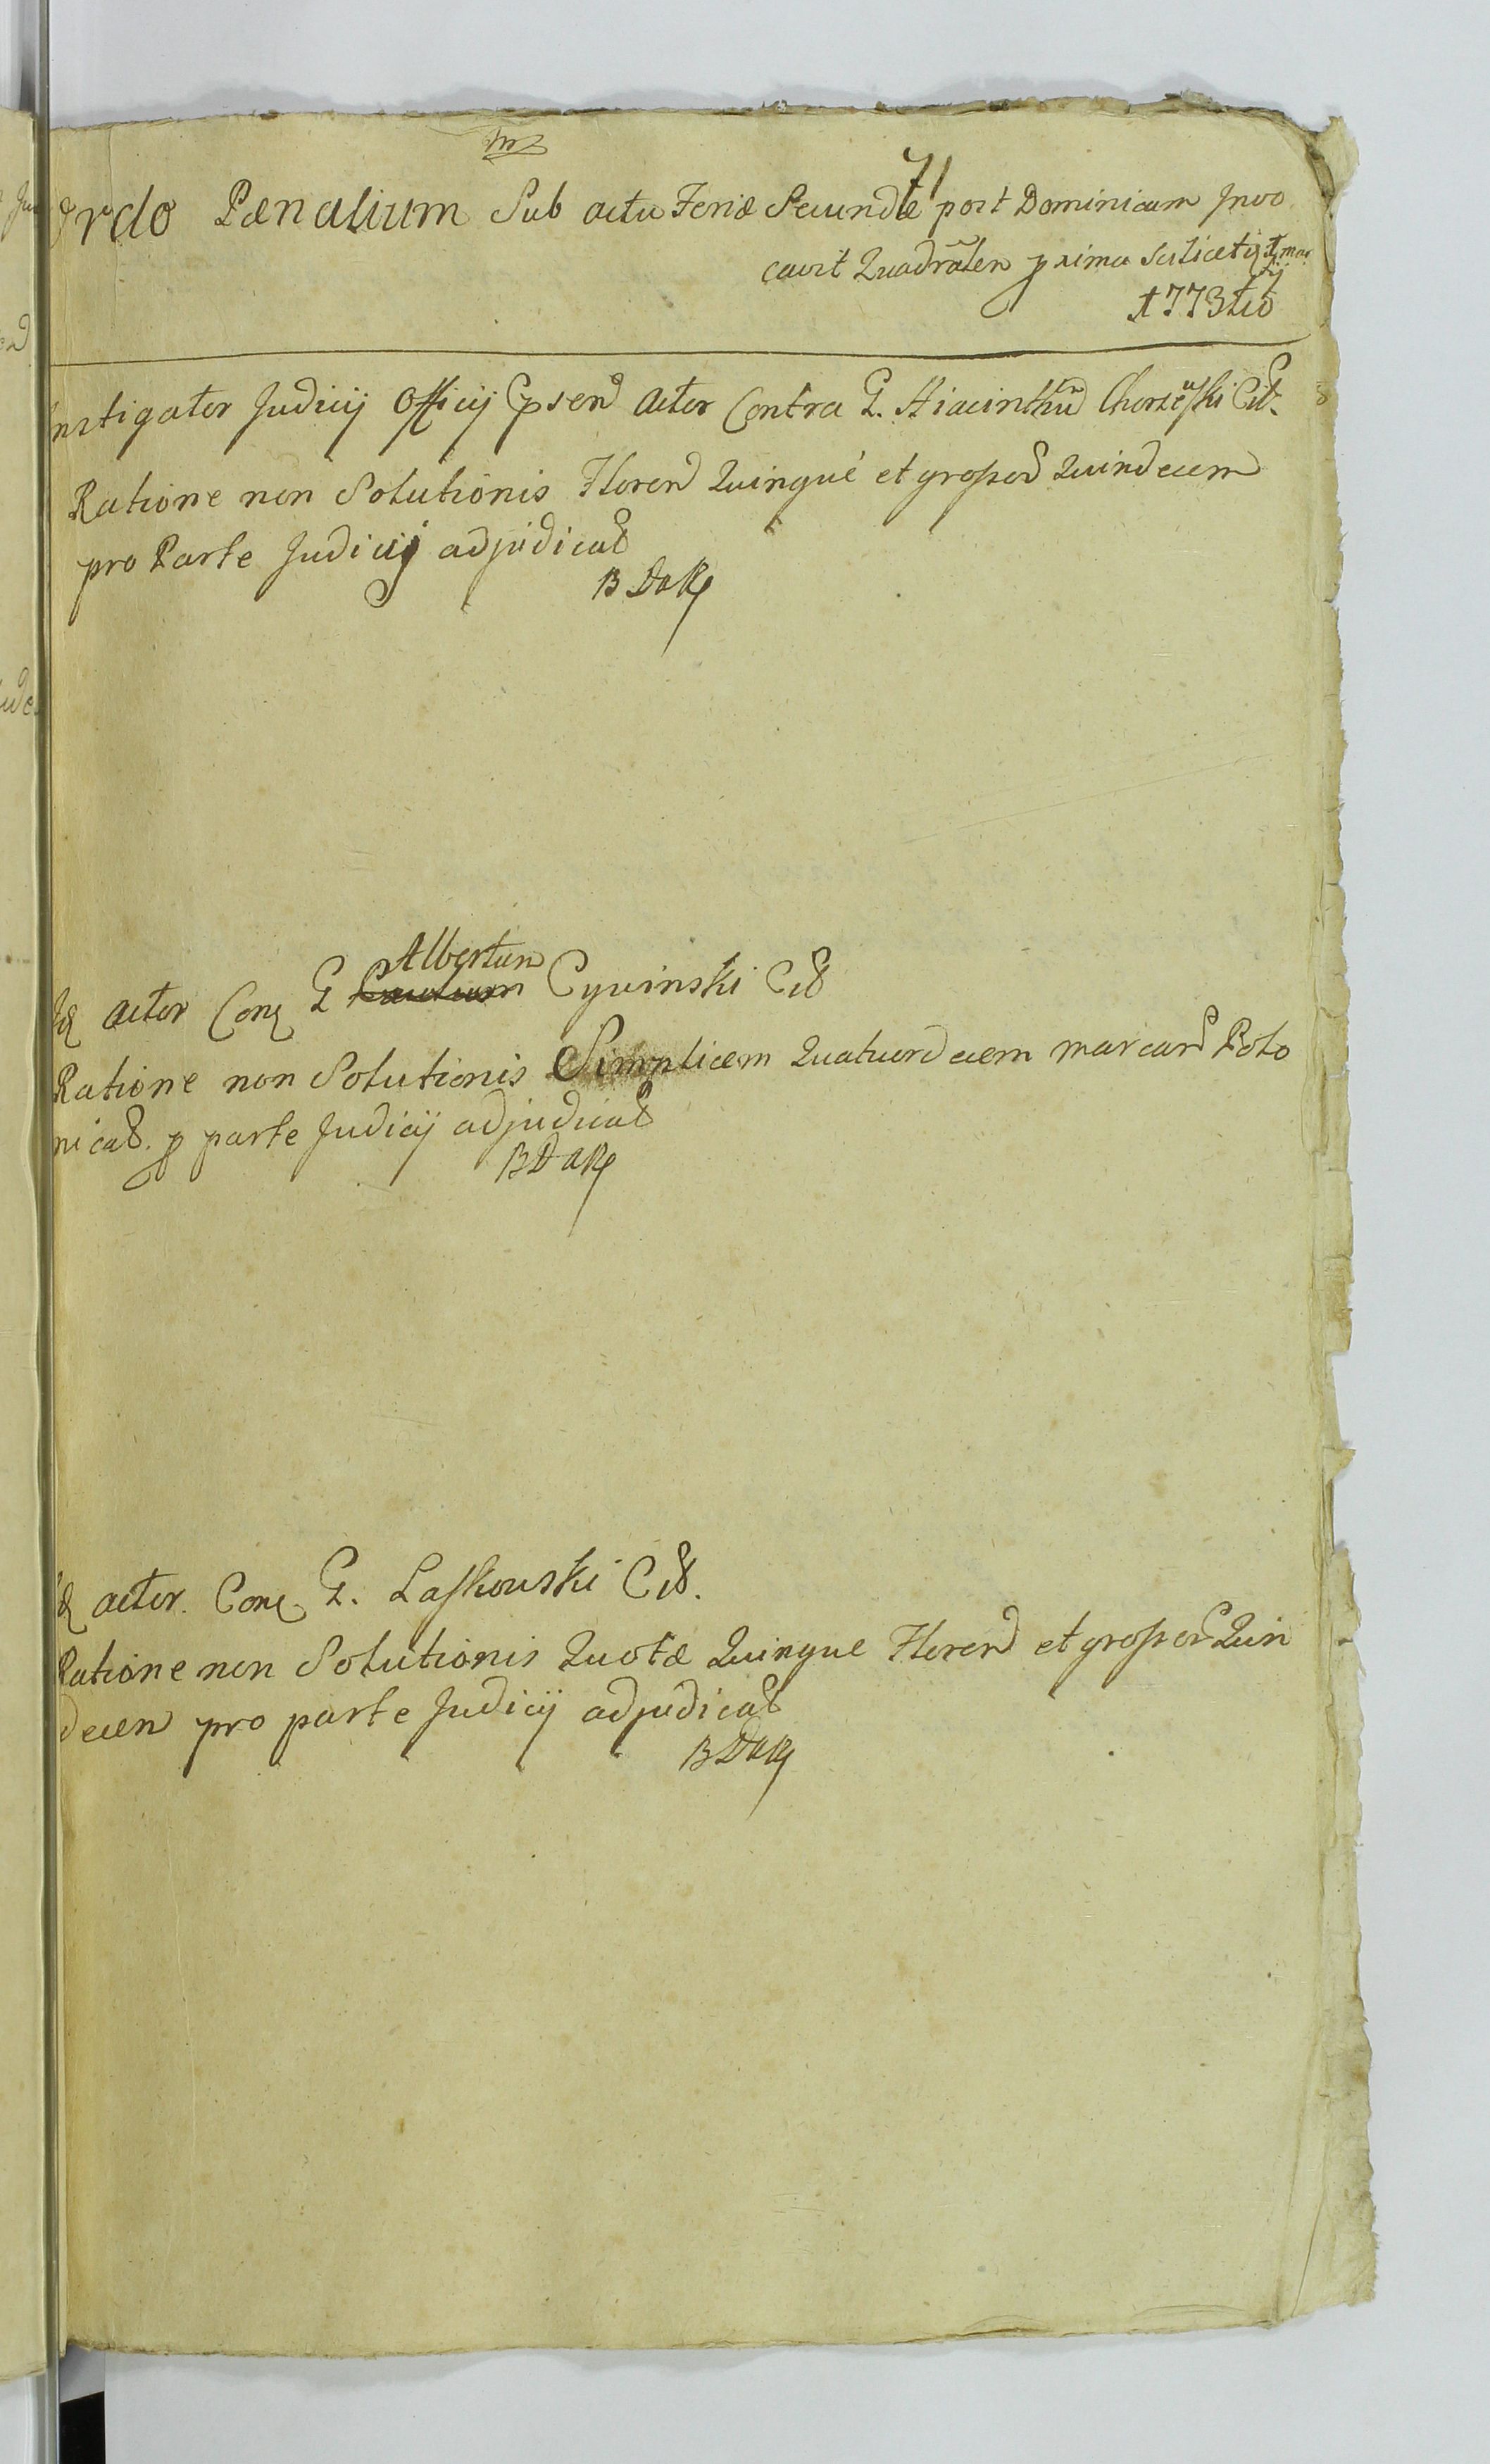 71
Ordo Pænalium Sub actu Feriæ Secundæ post Dominicam Invo
cavit Quadrãlem prima scilicet 1 mar
tij
1773tio
Instigator Judicij Officij psen Actor Contra G. Hiacinthũ Cit
Ratione non Solutionis Floren Quinque et grossor Quindecem
pro Parte Judicij adjudicat
Albertum
Id actor Con G Cywinski Cit
Ratione non Solutionis Simplicem Quatuordecem marcar Polo
nicał. p parte Judicij adjudicat
Id actor. Con G. Laskowski Cit.
Ratione non Solutionis Quotæ Quinque Floren et grossor Quin
decem pro parte Judicij adjudicat